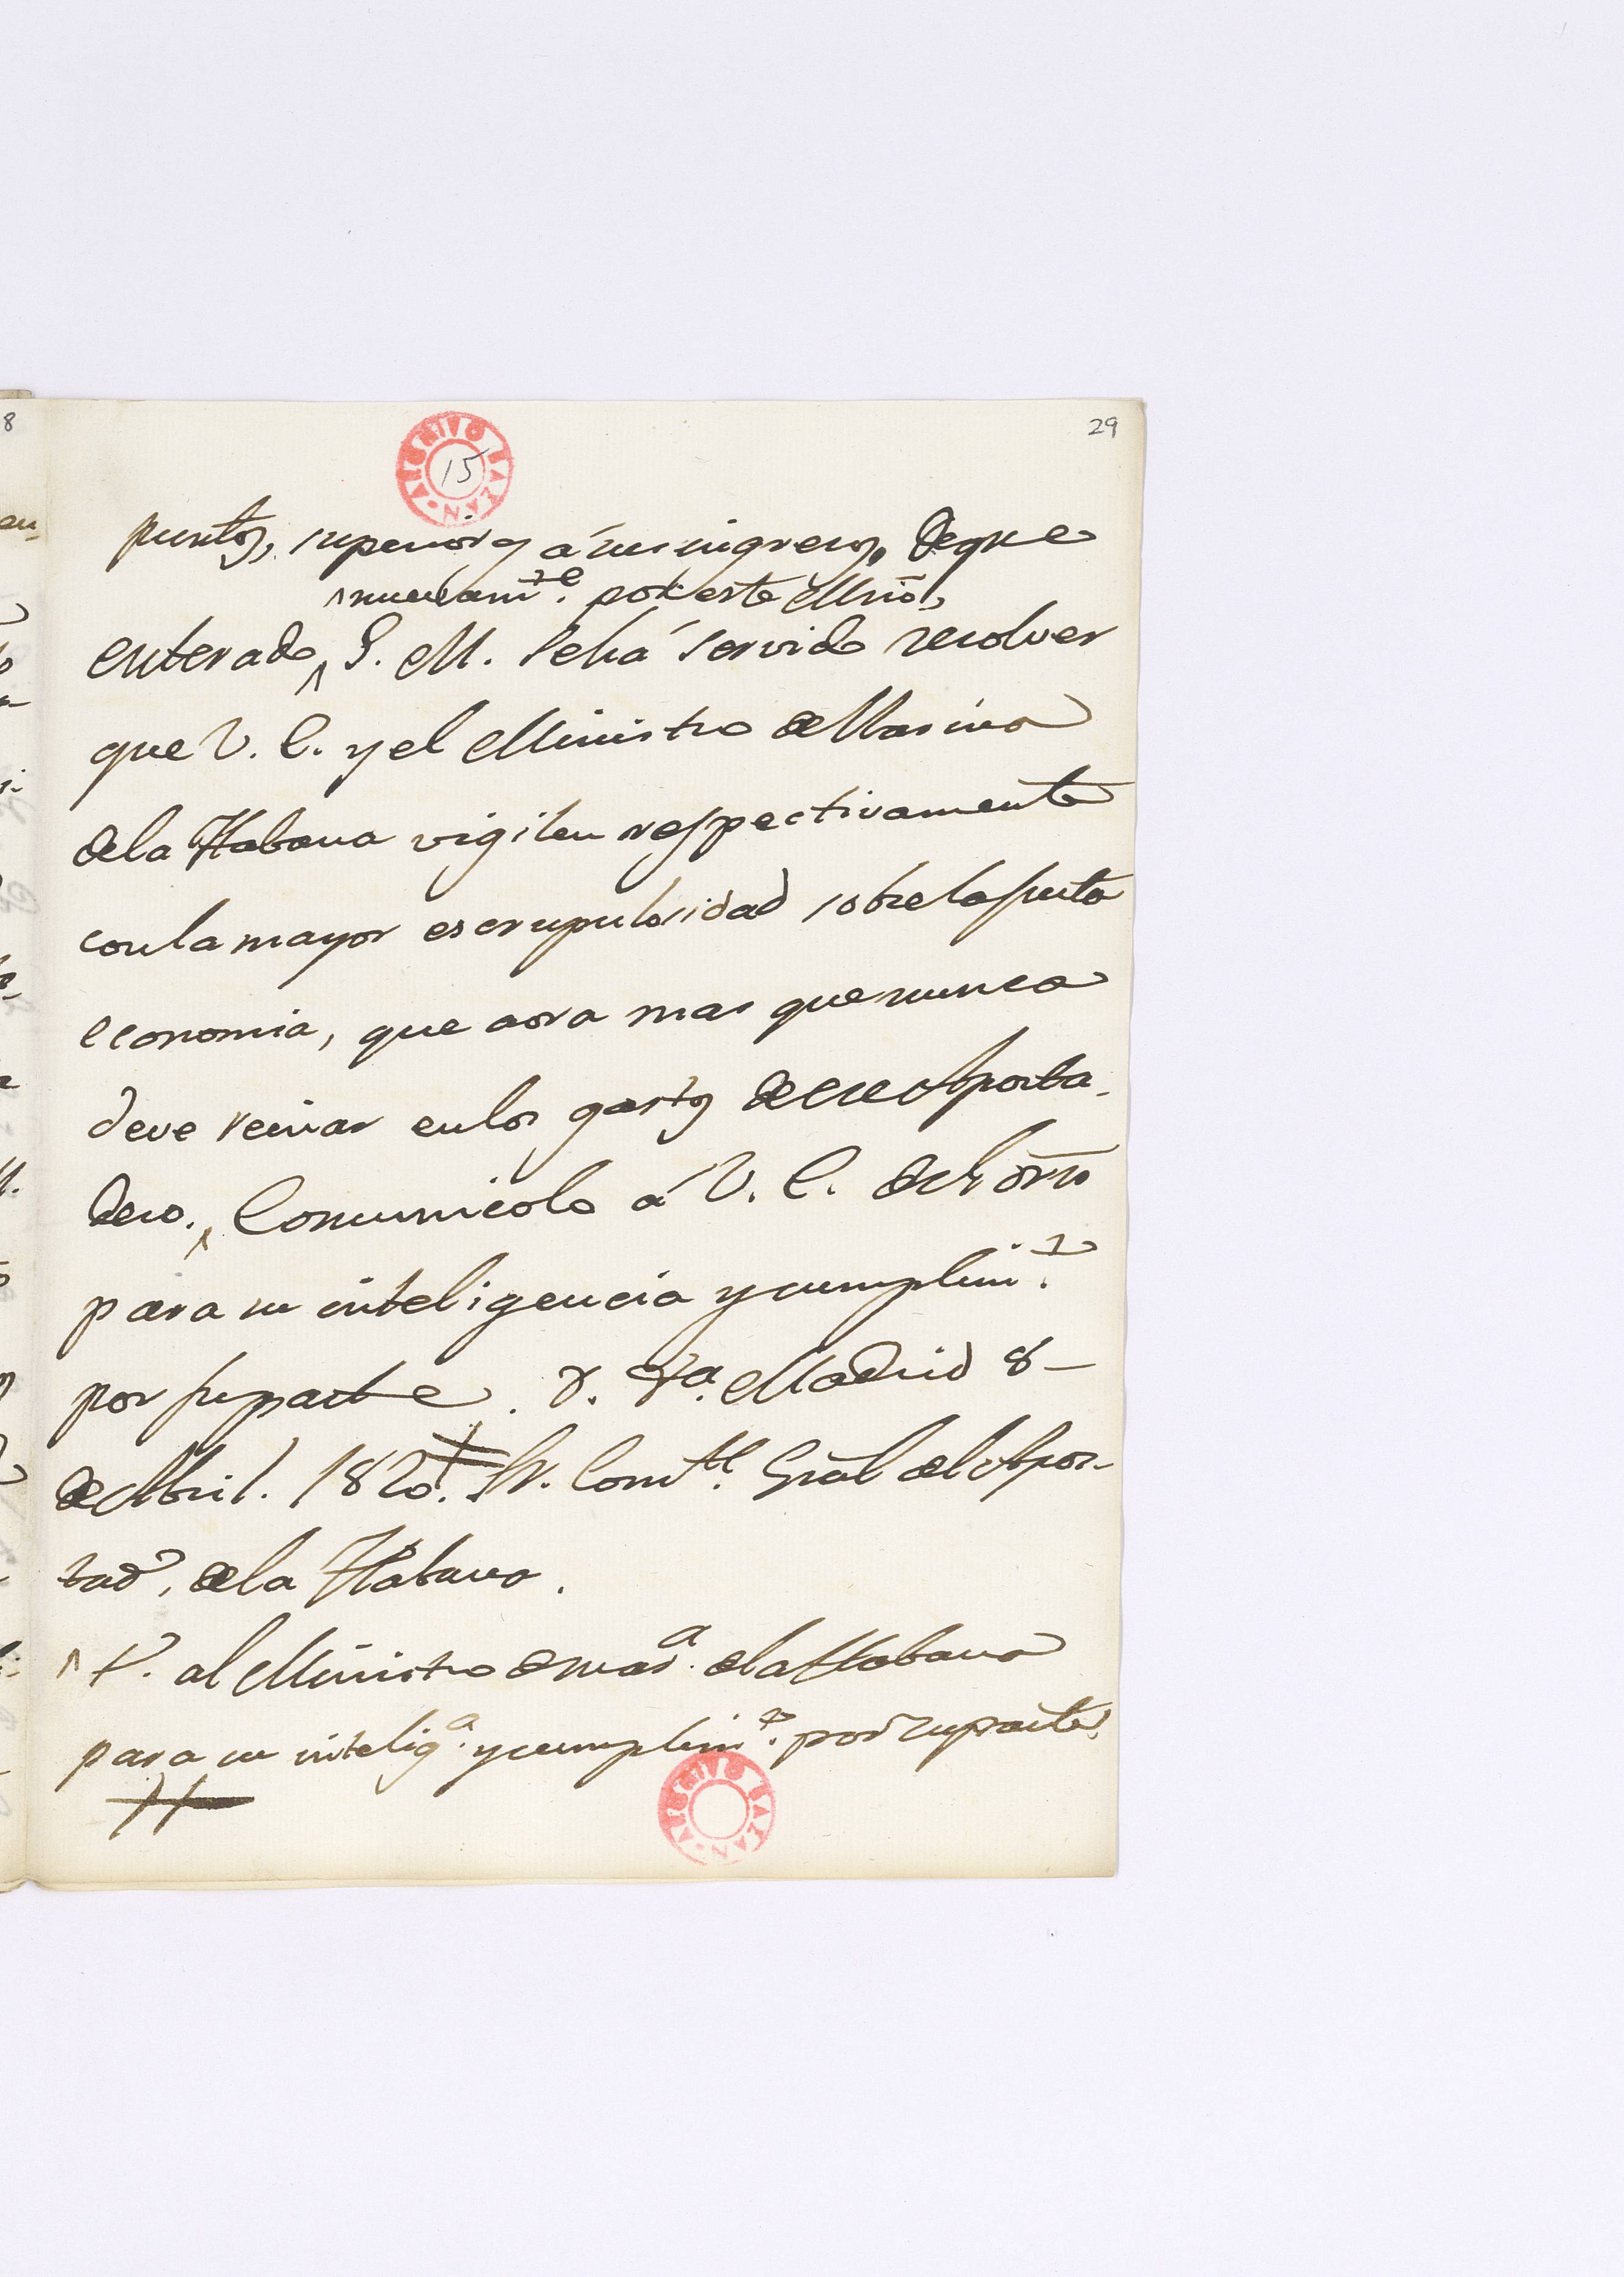 29
15
puntos, superiores á sus ingresos, de que
^nuevam.te por este Mrio,
enterado ^ S. M. se há servido resolver
que V. E. y el Ministro de Marina
de la Habana vigilen respectivamente
con la mayor escrupulosidad sobre la justa
economia, que aora mas que nunca
deve reinar en los gastos de ese Aposta-
dero. ^ Comunicolo á V. E. de Rl orn
para su inteligencia y cumplim.to
por su parte. D. &a. Madrid 8
de Abril. 1820. Sr. Com.te Gral del Apos-
tado. de la Habana.
^ Y. al Ministro de mar.a de la Habana
para su intelig.a y cumplim.to por su parte.
ARCHIVO BAZAN